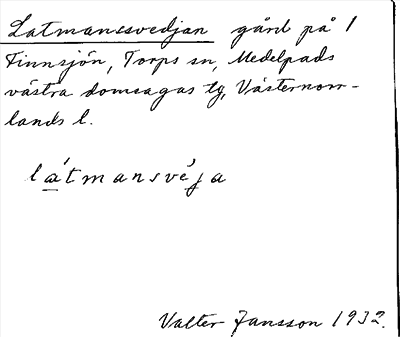 Latmanssvedjan gård på 1
Finnsjön, Torps sn, Medelpads
västra domsagas tg, Västernorr-
lands l.
lá̱tmansvéja
Valter Jansson 1932.